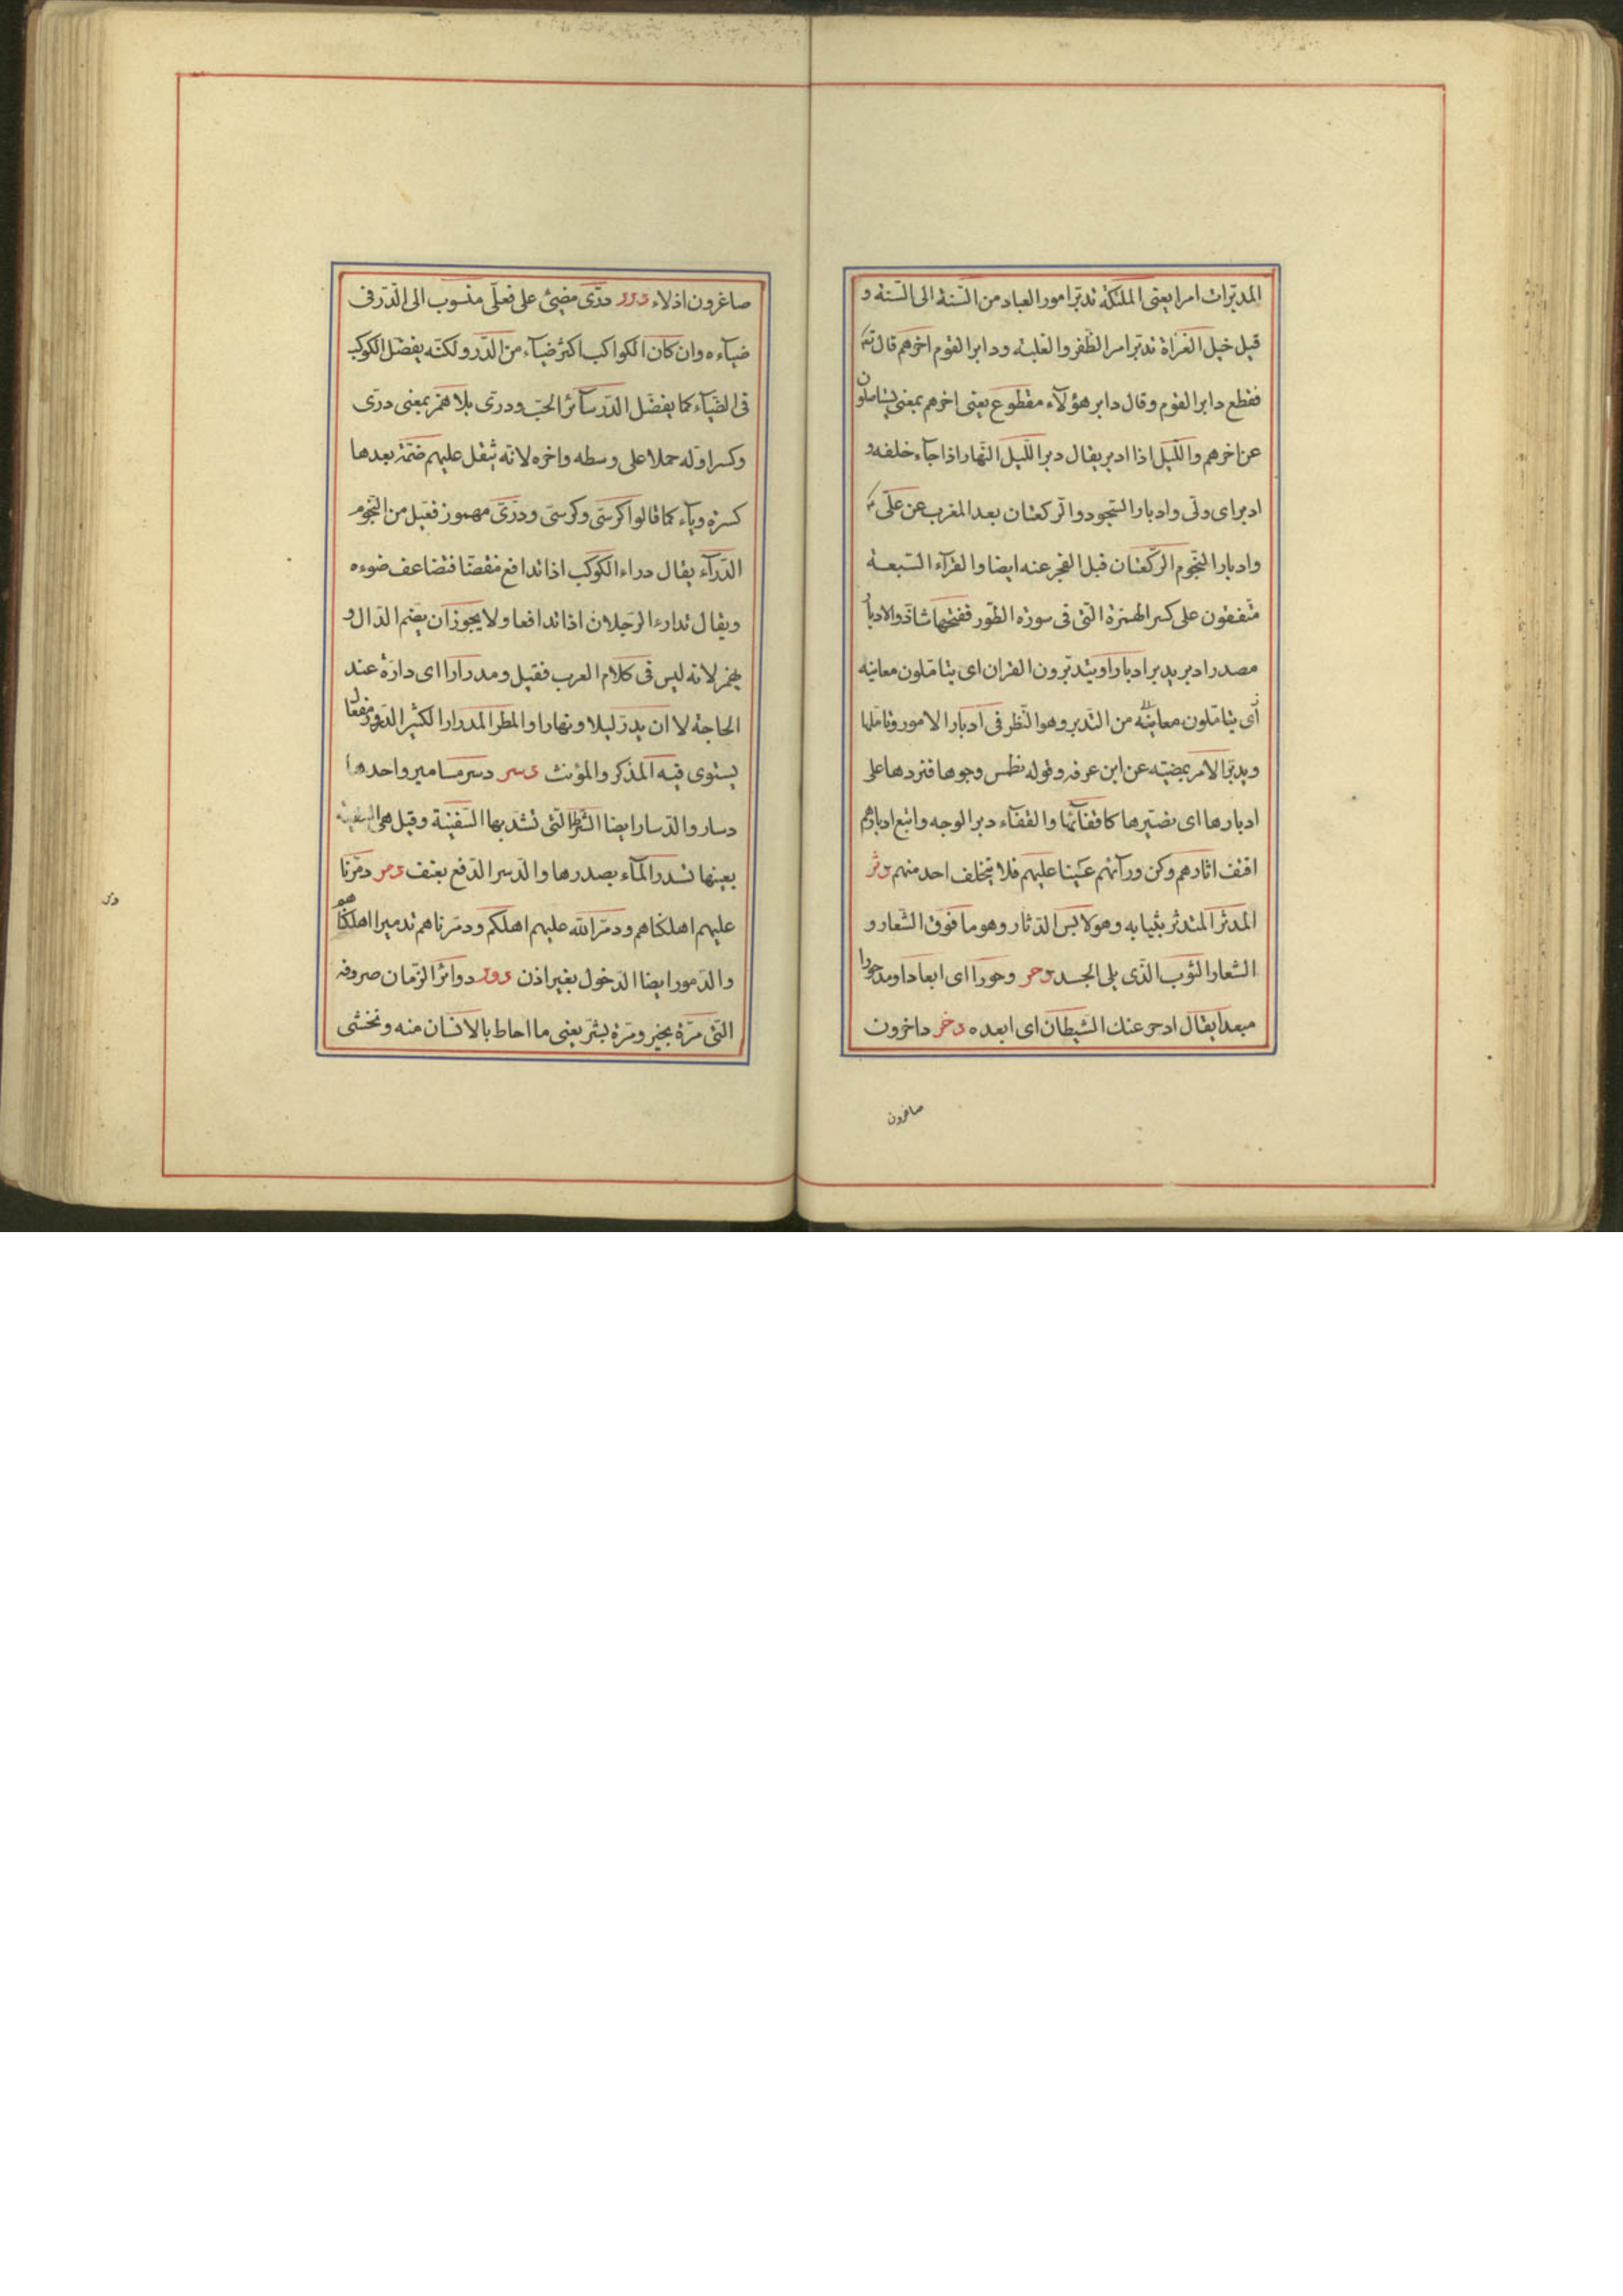 المدبّرات امرا يعنى الملئكة تدبّر امور العباد من السّنة الى السّنة و
قيل خيل الغزاة تدبّر امر الظّفر والغلبة ودابر القوم اخرهم قال تعـ
فقطع دابر القوم وقال دابر هؤلآء مقطوع يعنى اخرهم بمعنى يستاصلون
عن اخرهم واللّيل اذا ادبر يقال دبر اللّيل النّهار اذا جآء خلفه و
ادبر اى ولّى وادبار السّجود والرّكعتان بعد المغرب عن علىّ
وادبار النّجوم الرّكعتان قبل الفجر عنه ايضا والقرآء السّبعة
متّفقون على كسر الهمزة الّتى فى سورة الطّور ففتحها شاذّ والادبار
مصدر ادبر يدبر ادبارا ويتدبّرون القران اى يتامّلون معانيه
اى يتامّلون معانيه من التّدبر وهو النّظر فى ادبار الامور وتاملها
ويدبّر الامر يمضيه عن ابن عرفه وقوله نطمس وجوها فنردها على
ادبارها اى نصيّرها كاقفآئها والقفآء دبر الوجه واتبع ادبارهم
اقتف اثارهم وكن ورآئهم عينا عليهم فلا يتخلف احد منهم دثر
المدثر المتدثر بثيابه وهو لابس الدّثار وهو ما فوق الشّعار و
الشعار الثوب الّذى يلى الجسد دحر دحورا اى ابعادا ومدحورا
مبعدا يقال ادحر عنك الشيطان اى ابعده دخر داخرون
صاغرون
صاغرون اذلاء درر درّى مضيئ على فعلّى منسوب الى الدّر فى
ضيآءه وان كان الكواكب اكثر ضيآء من الدّر ولكنّه يفضل الكوكب
فى الضّيآء كما يفضل الدّر سآئر الحبّ ودرّى بلا همز بمعنى درّى
وكسر اوّله حملا على وسطه واخره لانّه يثقل عليهم ضمّة بعدها
كسرة ويآء كما قالوا كرسّى وكرسّى ودرّىّ مهموز فعيل من النّجوم
الدّرآء يقال دراء الكوكب اذا تدافع منقضّا فتضاعف ضوءه
ويقال تدارء الرّجلان اذا تدافعا ولا يجوز ان يضم الدّال و
يهمز لانه ليس فى كلام العرب فعيل ومدرارا اى دارّة عند
الحاجة لا ان يدر ليلا ونهارا والمطر المدرار الكثير الدّرور مفعال
يستوى فيه المذكر والمؤنث دسر دسر مسامير واحدها
دسار والدّسار ايضا الشّرط الّتى تشدّ بها السّفينة وقيل هى السفينة
بعينها تدسر المآء بصدرها والدّسر الدّفع بعنف دمر دمّرنا
عليهم اهلكناهم ودمّر الله عليهم اهلكهم ودمّرناهم تدميرا اهلكناهم
والدّمور ايضا الدّخول بغير اذن دور دوائر الزّمان صروفه
التى مرّة بخير ومرّة بشرّ يعنى ما احاط بالانسان منه ونخشى